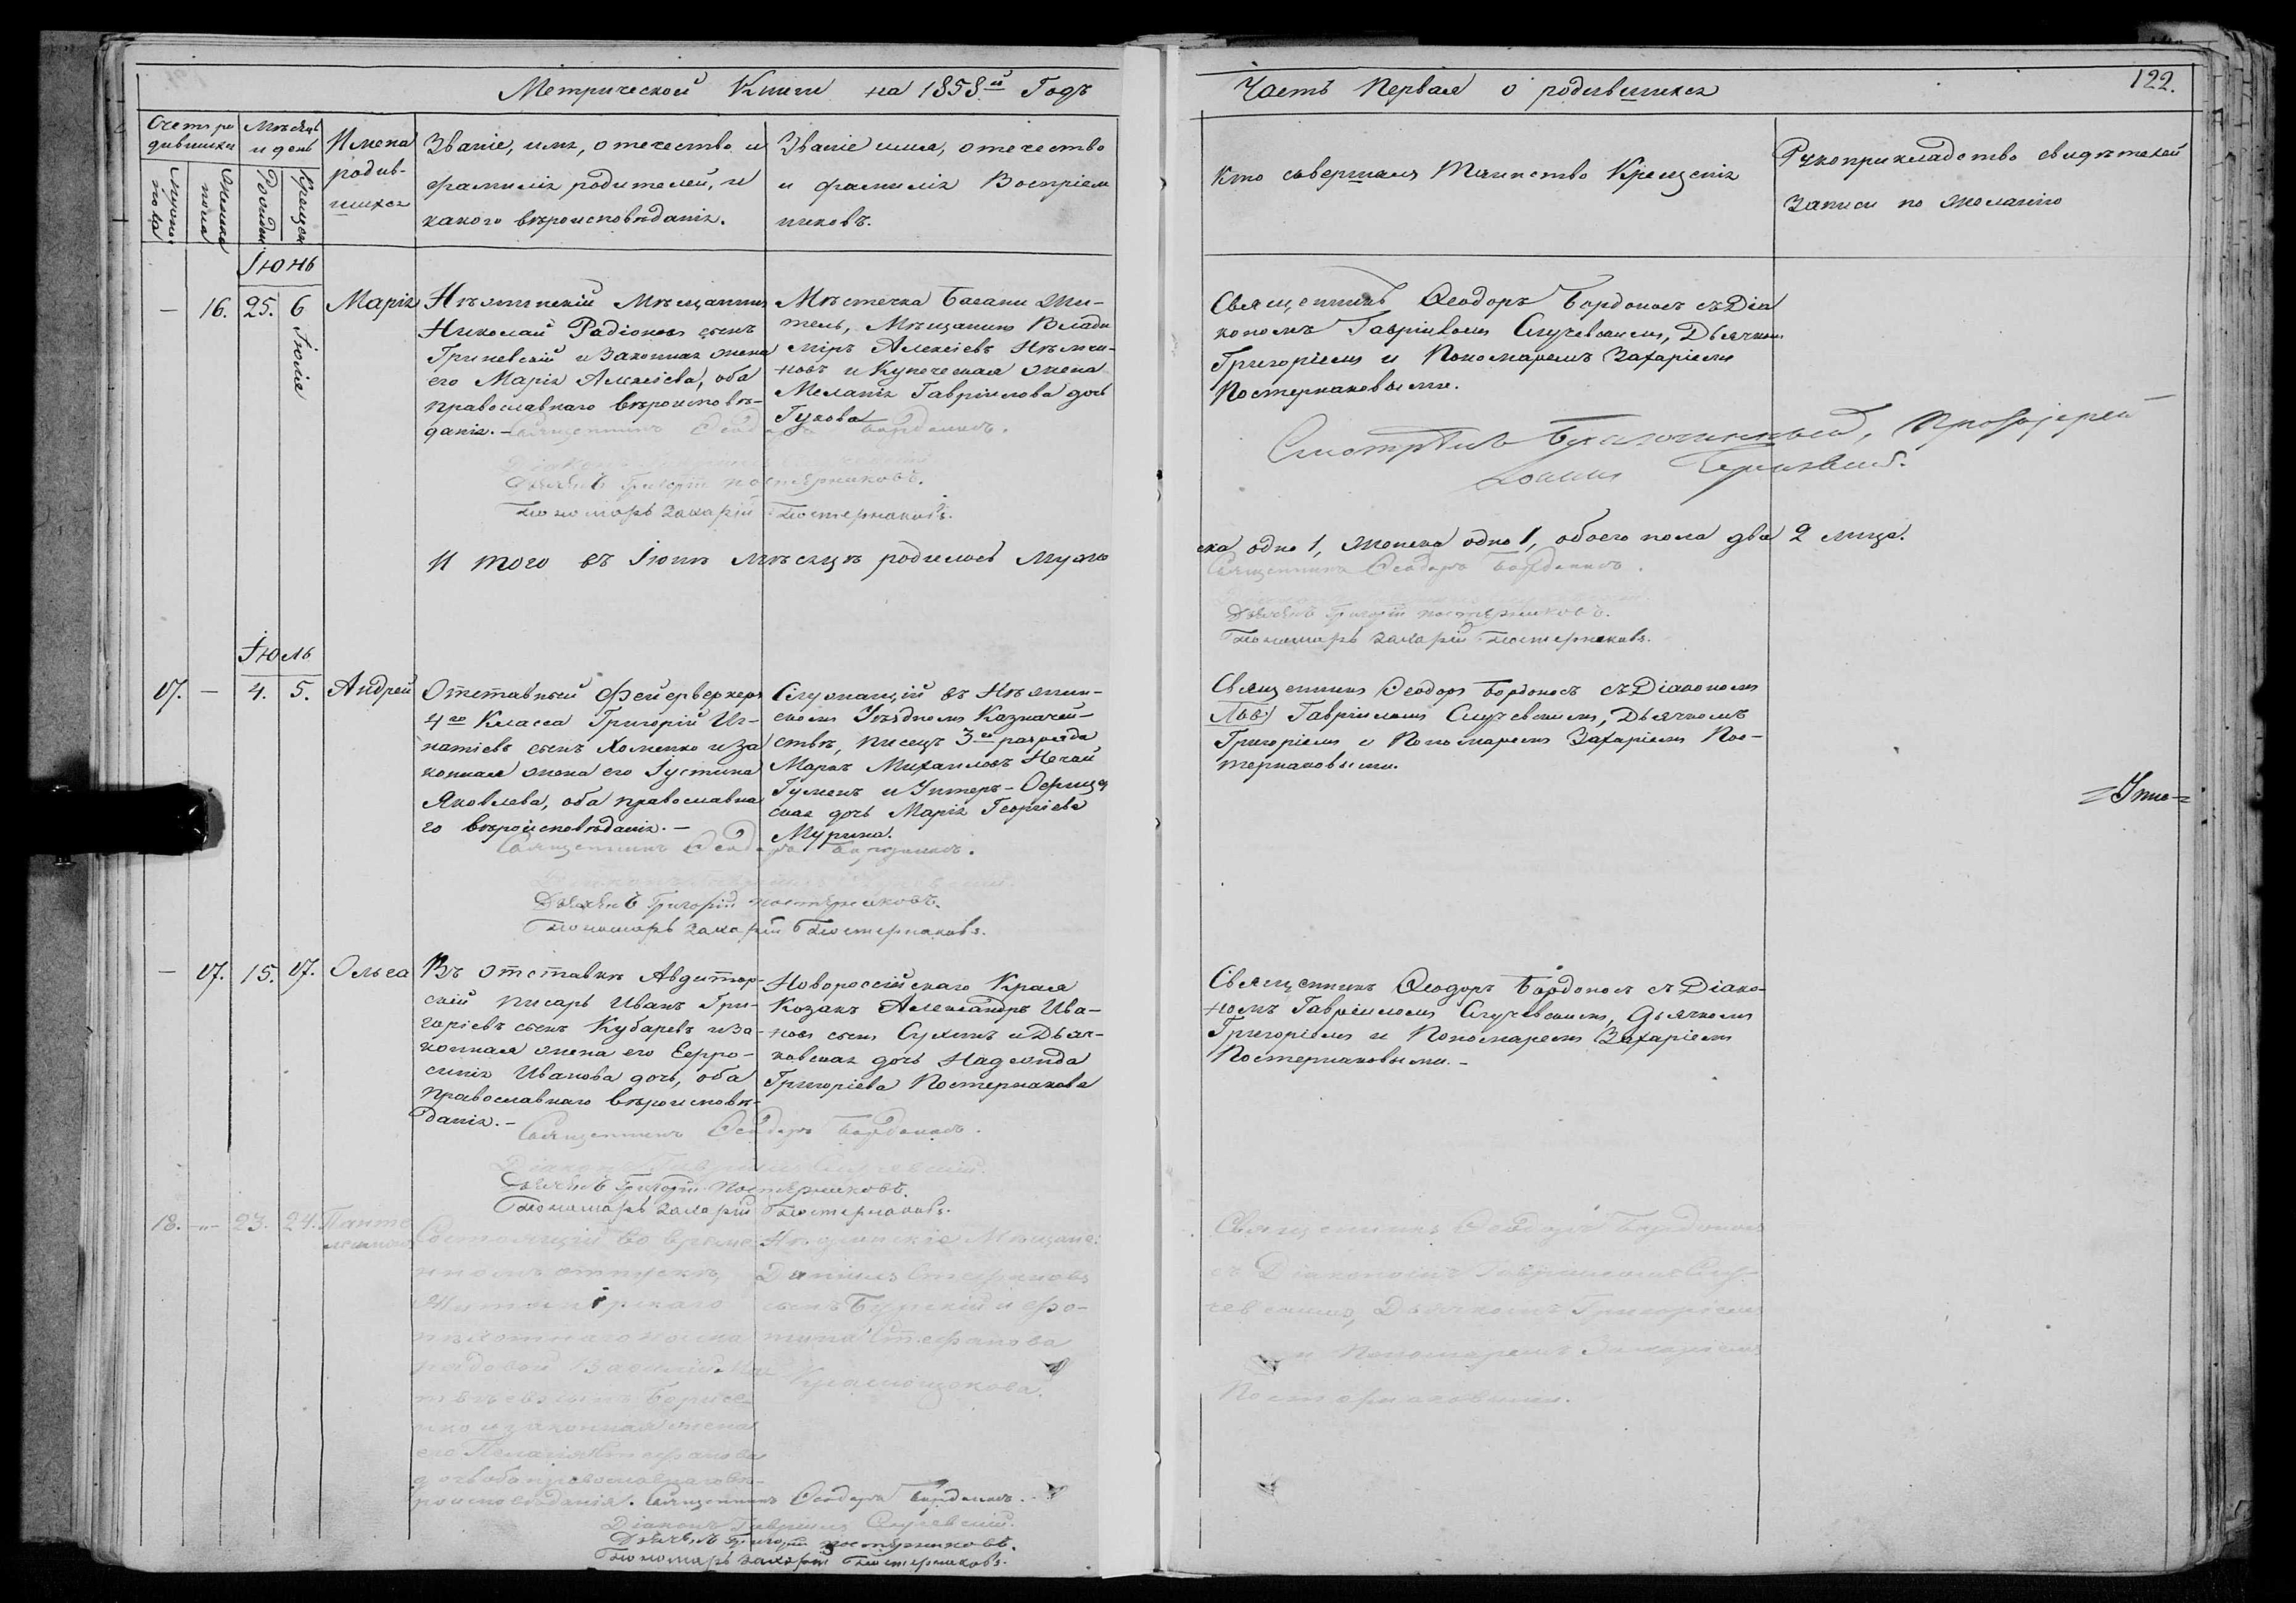 Метрической Книги на 1858й Годъ
Часть Первая о родившихся
122.
Счетъ ро
дившихся
Мѣсяцъ
и день
Имена
родив-
шихся
Званіе, имя, отечество и
фамилія родителей, и
какого вѣроисповѣданія.
Званіе имя, отечество
и фамилія Воспріем
никовъ.
Кто совершалъ Таинство Крещенія
Рукоприкладство свидѣтелей
записи по желанію
Мужеска
пола
Женска
пола
Рожден.
Крещен
Іюнь
— 16. 25. 6 Іюля Марія
Нѣжинскій Мѣщанинъ
Николай Радіоновъ сынъ
Гриневскій и Законная жена
его Марія Алексіева, оба
православнаго вѣроисповѣ-
данія. —
Мѣстечка жи-
тель, Мѣщанинъ Влади
міръ Алексіевъ
и Купеческая жена
Меланія Гавріилова дочь
Гукова
Священникъ Ѳеодоръ Бордоносъ съ Діа
кономъ Гавріиломъ Случевскимъ, Дьячкомъ
Григоріемъ и Пономаремъ Захаріемъ
Постернаковыми.
Священникъ Ѳеодоръ Бордоносъ.
Діаконъ
Дьячекъ Григорій Постернаковъ.
Пономарь Захарій Постернаковъ.
Смотрѣлъ Благочинный, Протоіерей
Іоаннъ
И того въ Іюнѣ мѣсяцѣ родилось муже
ска одно 1, женска одно 1, обоего пола два 2 лица.
Священникъ Ѳеодоръ Бордоносъ.
Дьячекъ Григорій Постернаковъ.
Пономарь Захарій Постернаковъ.
Іюль
17. — 4. 5. Андрей
Отставный Фейерверкеръ
4го Класса Григорій Иг-
натіевъ сынъ Хоменко и за
конная жена его Іустина
Яковлева, оба православна
го вѣроисповѣданія. —
Служащій въ Нѣжин-
скомъ Уѣздномъ Казначей-
ствѣ, писецъ 3го разряда
Маркъ Михаиловъ Нечай
Гуменъ и Унтеръ-Офицер
ская дочь Марія Георгіева
Мурина.
Священникъ Ѳеодоръ Бордоносъ съ Діакономъ
Гавріиломъ Случевскимъ, Дьячкомъ
Григоріемъ и Пономаремъ Захаріемъ Пос-
тернаковыми.
Священникъ Ѳеодоръ Бордоносъ.
Дьячекъ Григорій Постернаковъ.
Пономарь Захарій Постернаковъ.
— 17. 15. 17. Ольга
Въ отставкѣ Авдитор-
скій писарь Иванъ Гри-
горіевъ сынъ Кубаревъ и за-
конная жена его Евфро-
синія Иванова дочь, оба
православнаго вѣроисповѣ-
данія. —
Новороссійскаго Края
Козакъ Александръ Ива-
новъ сынъ Сухинъ и Дьяч-
ковская дочь Надежда
Григоріева Постернакова
Священникъ Ѳеодоръ Бордоносъ съ Діако-
номъ Гавріиломъ Случевскимъ, Дьячкомъ
Григоріемъ и Пономаремъ Захаріемъ
Постернаковыми. —
Священникъ Ѳеодоръ Бордоносъ.
Діаконъ Гавріилъ Случевскій.
Дьячекъ Григорій Постернаковъ.
Пономарь Захарій Постернаковъ.
18. — 23. 24. Панте
леимонъ
Состоящій во време
нномъ отпускѣ,
Житомірскаго
рядовой Василій Мат
твѣевъ сынъ Борисе
нко и законная жена
его Пелагія Стефанова
дочь оба православнаго вѣ-
роисповѣданія.
Нѣжинскіе Мѣщане:
Даніилъ Стефановъ
сынъ и Фо-
тина Стефанова
Священникъ Ѳеодоръ Бордоносъ
съ Діакономъ Гавріиломъ Слу-
чевскимъ, Дьячкомъ Григоріемъ
и Пономаремъ Захаріемъ
Постернаковыми.
Священникъ Ѳеодоръ Бордоносъ.
Діаконъ Гавріилъ Случевскій.
Дьячекъ Григорій Постернаковъ.
Пономарь Захарій Постернаковъ.